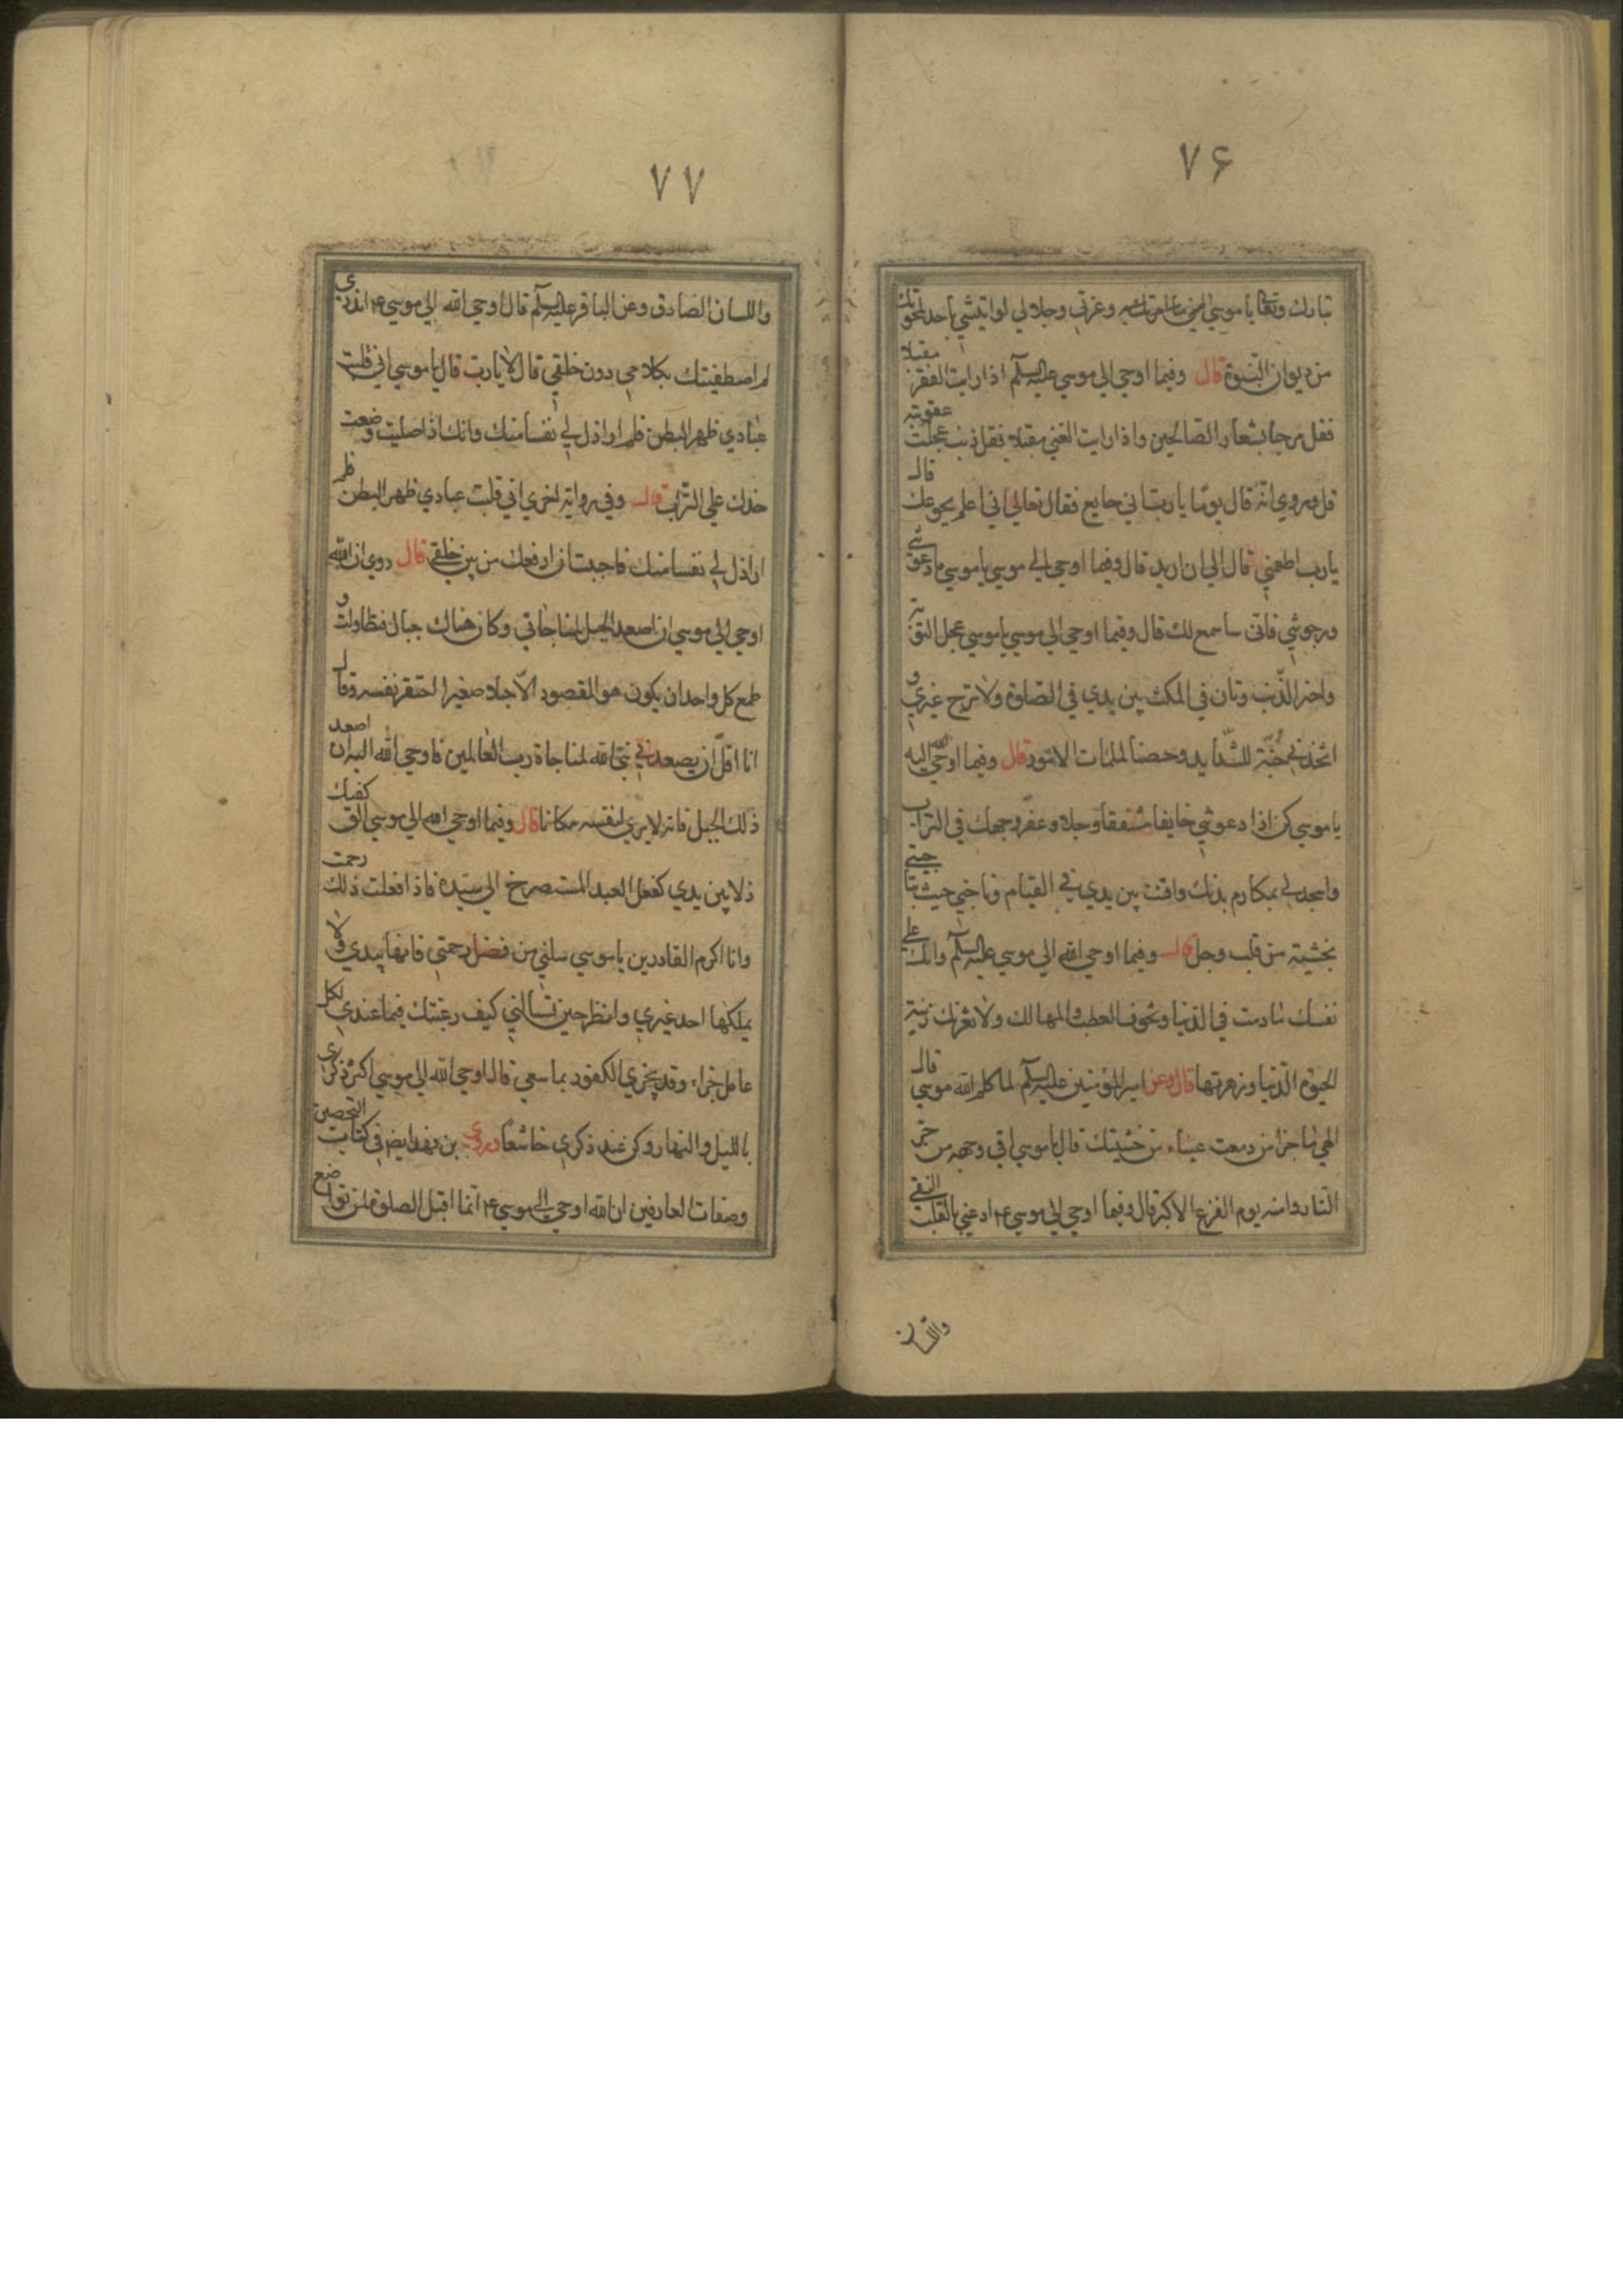 ۷۶
تبارك وتعالى يا موسى وعزتي وجلالي لو اتيتني باحد لمحوتك
من ديوان النبوة قال وفيما اوحي الى موسى عليه السلم اذا رايت الفقر مقبلا
فقل مرحبا بشعار الصالحين واذا رايت الغني مقبلا فقل ذنب عجلت عقوبته
قال وروي انه قال يوما يا رب اني جايع فقال تعالى اني اعلم بجوعك قال
يا رب اطعمني قال الى ان اريد قال وفيما اوحي الى موسى يا موسى ما دعوتني
ورجوتني فاني سامع لك قال وفيما اوحي الى موسى يا موسى عجل التوبة
واخر الذنب وتان في المكث بين يدي في الصلوة ولا ترج غيري و
اتخذني جنة للشدايد وحصنا لملمات الامور قال وفيما اوحي الله اليه
يا موسى كن اذا دعوتني خايفا مشفقا وجلا وعفر وجهك في التراب
واسجد لي بمكارم بدنك واقنت بين يدي في القيام وناجني حيث تناجيني
بخشية من قلب وجل قال وفيما اوحي الله الى موسى عليه السلم وابك على
نفسك ما دمت في الدنيا وتخوف العطب والمهالك ولا تغرنك زينة
الحيوة الدنيا وزهرتها قال وعن امير المؤمنين عليه السلم لما كلم الله موسى قال
الهي ما جزا من دمعت عيناه من خشيتك قال يا موسى اقي وجهه من حر
النار وامنه يوم الفزع الاكبر قال وفيما اوحي الى موسى ع ادعني بالقلب النقي
واللسان
۷۷
واللسان الصادق وعن الباقر عليه السلم قال اوحي الله الى موسى ع اتدري
لم اصطفيتك بكلامي دون خلقي قال لا يا رب قال يا موسى اني قلبت
عبادي ظهر البطن فلم ار اذل لي نفسا منك وانك اذا صليت وضعت
خدك على التراب قال وفي رواية اخري اني قلبت عبادي ظهر البطن فلم
ار اذل لي نفسا منك فاحببت ان ارفعك من بين خلقي قال روي ان الله
اوحي الى موسى ان اصعد الجبل لمناجاتي وكان هناك جبال فتطاولت و
طمع كل واحد ان يكون هو المقصود الا جبلا صغيرا احتقر نفسه وقال
انا اقل ان يصعدني نبي الله لمناجاة رب العالمين فاوحي الله اليه ان اصعد
ذلك الجبل فانه لا يري لنفسه مكانا قال وفيما اوحي الله الى موسى الق كفيك
ذلا بين يدي كفعل العبد المستصرخ الى سيده فاذا فعلت ذلك رحمت
وانا اكرم القادرين يا موسى سلني من فضل رحمتي فانها بيدي ولا
يملكها احد غيري وانظر حين تسالني كيف رغبتك فيما عندي لكل
عامل جزاء وقد يجزي الكفور بما سعي قال اوحي الله الى موسى اكثر ذكري
بالليل والنهار وكن عند ذكري خاشعا وروي بن فهد ايض في كتاب التحصين
وصفات العارفين ان الله اوحي الى موسى ع انما اقبل الصلوة لمن تواضع